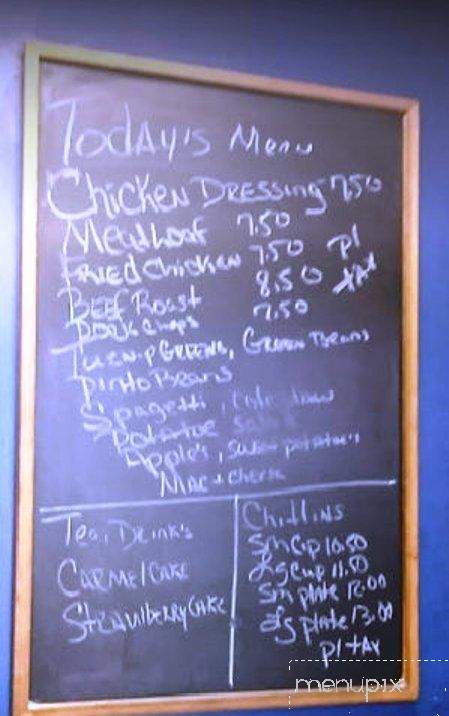 Today's Menu
Chicken Dressing 7.50
Meatloaf 7.50
Fried Chicken 7.50 pl
Beef Roast 8.50 tax
Pork Chops 7.50
Turnip Greens, Green Beans
Pinto Beans
Spagetti, Cole slaw
Potatoe Salad
Apple's, Sweet potatoe's
Mac + cheese
Tea, Drink's
Carmel Cake
Strawberry Cake
Chitlins
Sm cup 10.50
Lg cup 11.50
Sm plate 12.00
Lg plate 13.00
pl tax
menupix